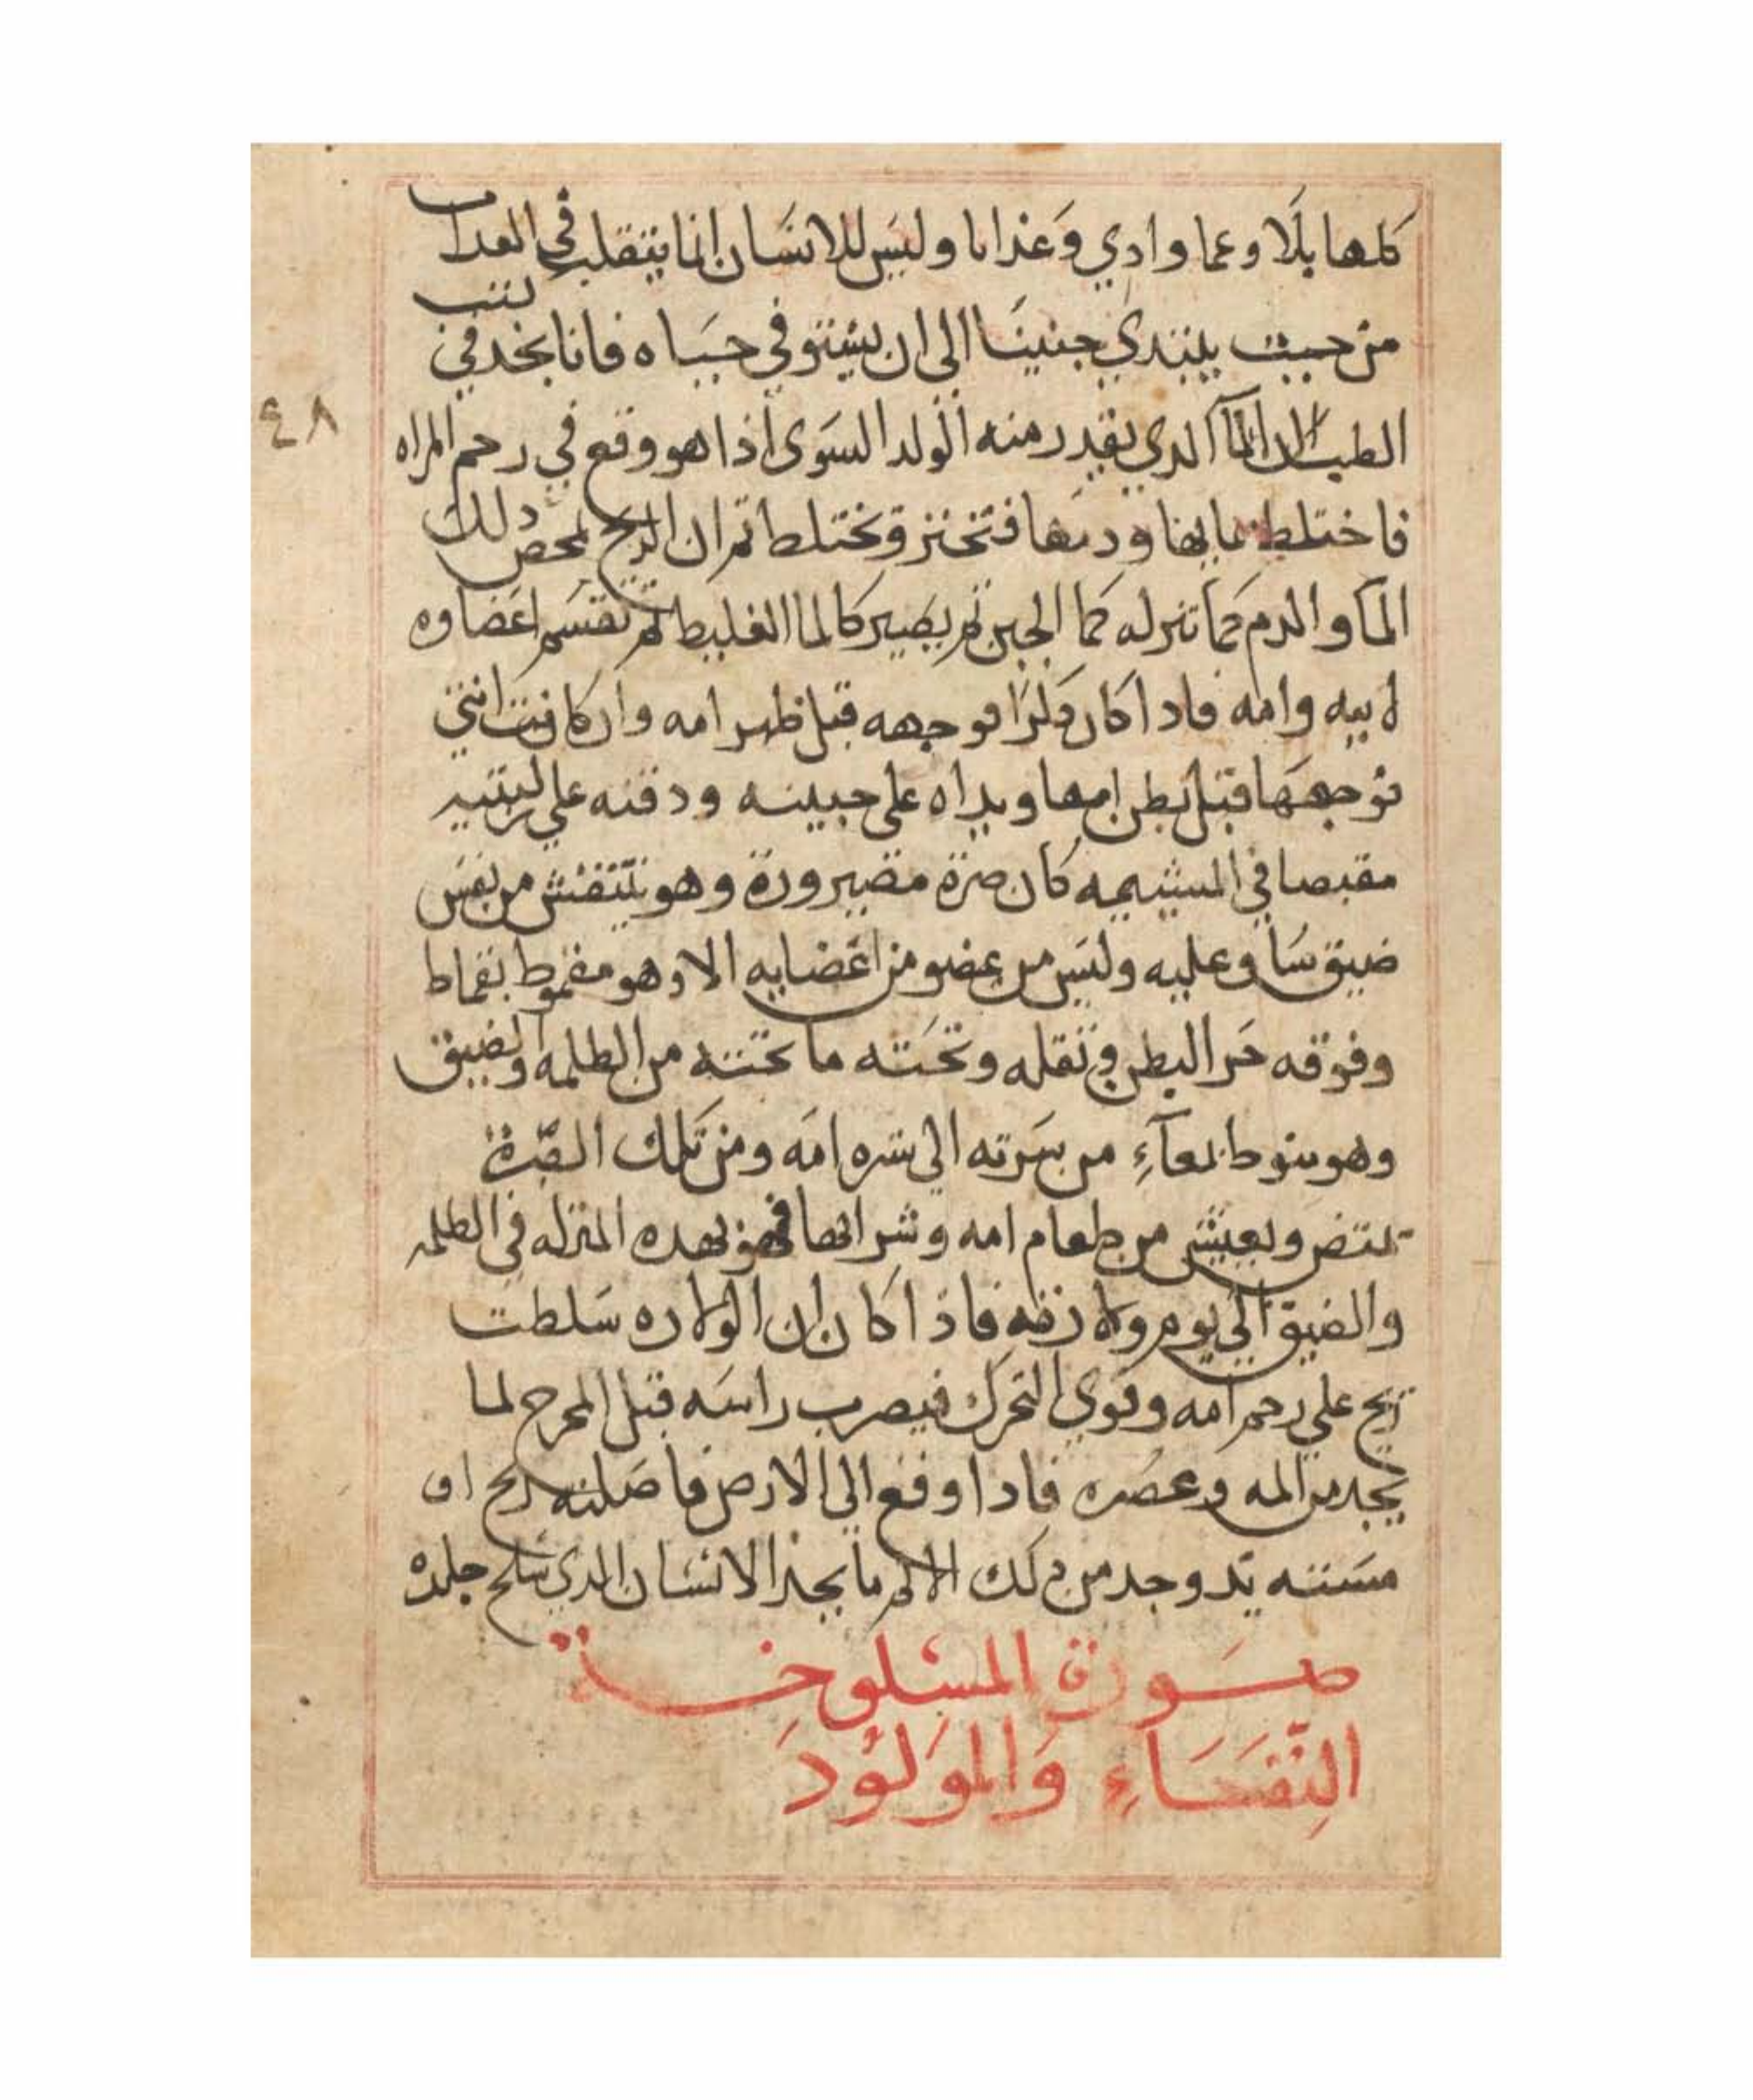 كلها بلا وعما وادي وعذابا وليس للانسان انما يتقلب في العداب
من حيث يبتدي جنينا الى ان يستوفي حياه فانا نجد في كتب
٤٨
الطب ان الما الدي يقدر منه الولد السوى اذا هو وقع في رحم المراه
فاختلط بمايها ودمها فتخثر وتختلط ثم ان الريح تمخض دلك
الما والدم حما تنزله كما الجبن ثم يصير كالما الغليط ثم تقسم اعضاوه
لابيه وامه فادا كان دكرا فوجهه قبل ظهر امه وان كانت انتي
فوجهها قبل بطن امها ويداه على جبينه ودقنه على ركبتيه
مقبصا في المشيمه كان صرة مصرورة وهو يتنفس من نفس
ضيق شا وعليه وليس من عضو من اعضايه الا وهو مقموط بقماط
وفوقه حر البطن وتقله وتحته ما تحته من الظلمه والضيق
وهو منوط بمعآء من سرته الى سره امه ومن تلك الصّرة
يمتص ويعيش من طعام امه وشرابها فهو بهده المنزله في الظلمه
والضيق الى يوم ولادته فاذا كان ان الولاده سلطت
ريح على رحم امه وقوي التحرك فيصرب راسه قبل المخرج لما
يجد من المه وعصره فادا وقع الى الارض فاصلته ريح او
مسته يد وجد من دلك الالم ما يجد الانسان الدي سلخ جلده
صورة المسلوخة
النّفسَاءِ وَالموَلوُدَ